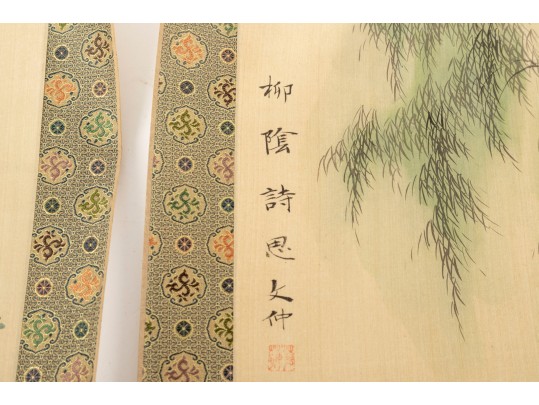 柳陰詩思文仲